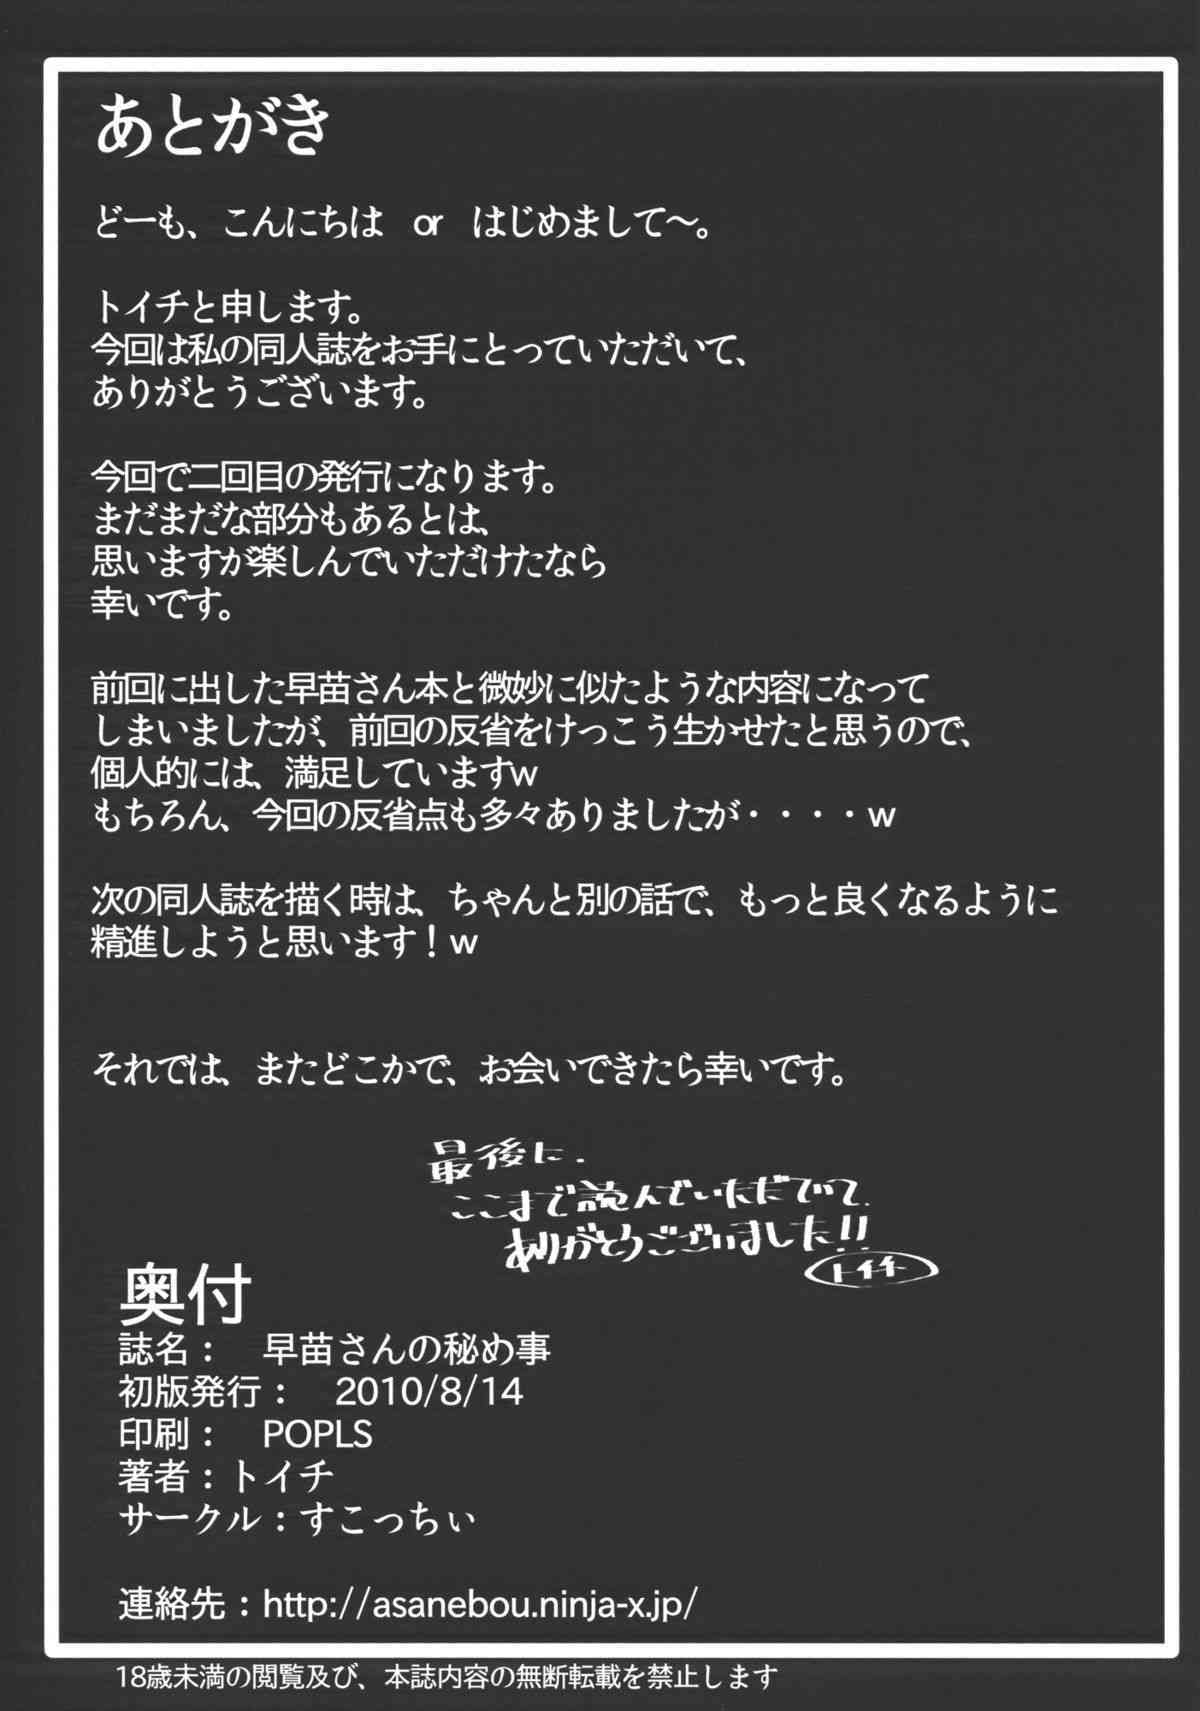 あとがき
どーも、こんにちは or はじめまして～。
トイチと申します。
今回は私の同人誌をお手にとっていただいて、
ありがとうございます。
今回で二回目の発行になります。
まだまだな部分もあるとは、
思いますが楽しんでいただけたなら
幸いです。
前回に出した早苗さん本と微妙に似たような内容になって
しまいましたが、前回の反省をけっこう生かせたと思うので、
個人的には、満足していますw
もちろん、今回の反省点も多々ありましたが・・・・w
次の同人誌を描く時は、ちゃんと別の話で、もっと良くなるように
精進しようと思います！w
それでは、またどこかで、お会いできたら幸いです。
最後に、
ここまで読んでいただいて、
ありがとうございました!!
トイチ
奥付
誌名： 早苗さんの秘め事
初版発行： 2010/8/14
印刷： POPLS
著者：トイチ
サークル：すこっちぃ
連絡先：http://asanebou.ninja-x.jp/
18歳未満の閲覧及び、本誌内容の無断転載を禁止します